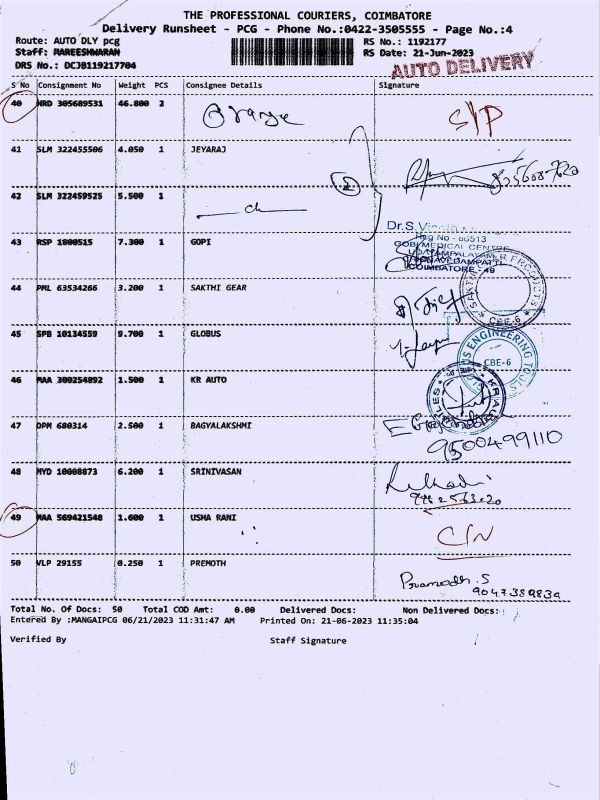 THE PROFESSIONAL COURIERS, COIMBATORE
Delivery Runsheet - PCG - Phone No.:0422-3505555 - Page No.:4
Route: AUTO DLY pcg RS No.: 1192177
Staff: MAREESHWARAN RS Date: 21-Jun-2023
DRS No.: DCJ0119217704
AUTO DELIVERY
S No Consignment No Weight PCS Consignee Details Signature
40 HRD 305689531 46.800 2 Orange
41 SLM 322455506 4.050 1 JEYARAJ
42 SLM 322459525 5.500 1
43 RSP 1800515 7.300 1 GOPI
Reg No - 60513
GOBI MEDICAL CENTRE
COIMBATORE - 49
44 PML 63534266 3.200 1 SAKTHI GEAR
CBE-6
45 SPB 10134559 9.700 1 GLOBUS
ENGINEERING TOOLS
CBE-6
46 MAA 300254892 1.500 1 KR AUTO
47 DPM 680314 2.500 1 BAGYALAKSHMI
9500499110
48 MYD 10008873 6.200 1 SRINIVASAN
49 MAA 569421548 1.600 1 USHA RANI C/N
50 VLP 29155 0.250 1 PREMOTH
Pramodh.S
Total No. Of Docs: 50 Total COD Amt: 0.00 Delivered Docs: Non Delivered Docs:
Entered By :MANGAIPCG 06/21/2023 11:31:47 AM Printed On: 21-06-2023 11:35:04
Verified By Staff Signature